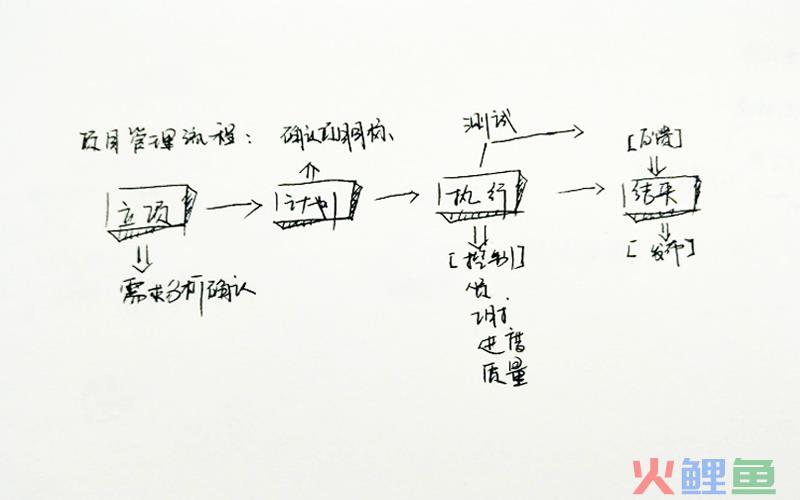 项目管理流程：
确认项目目标、
测试
[反馈]
立项
计划
执行
结束
需求分析确认
[控制]
[发布]
进度
质量
火鲤鱼